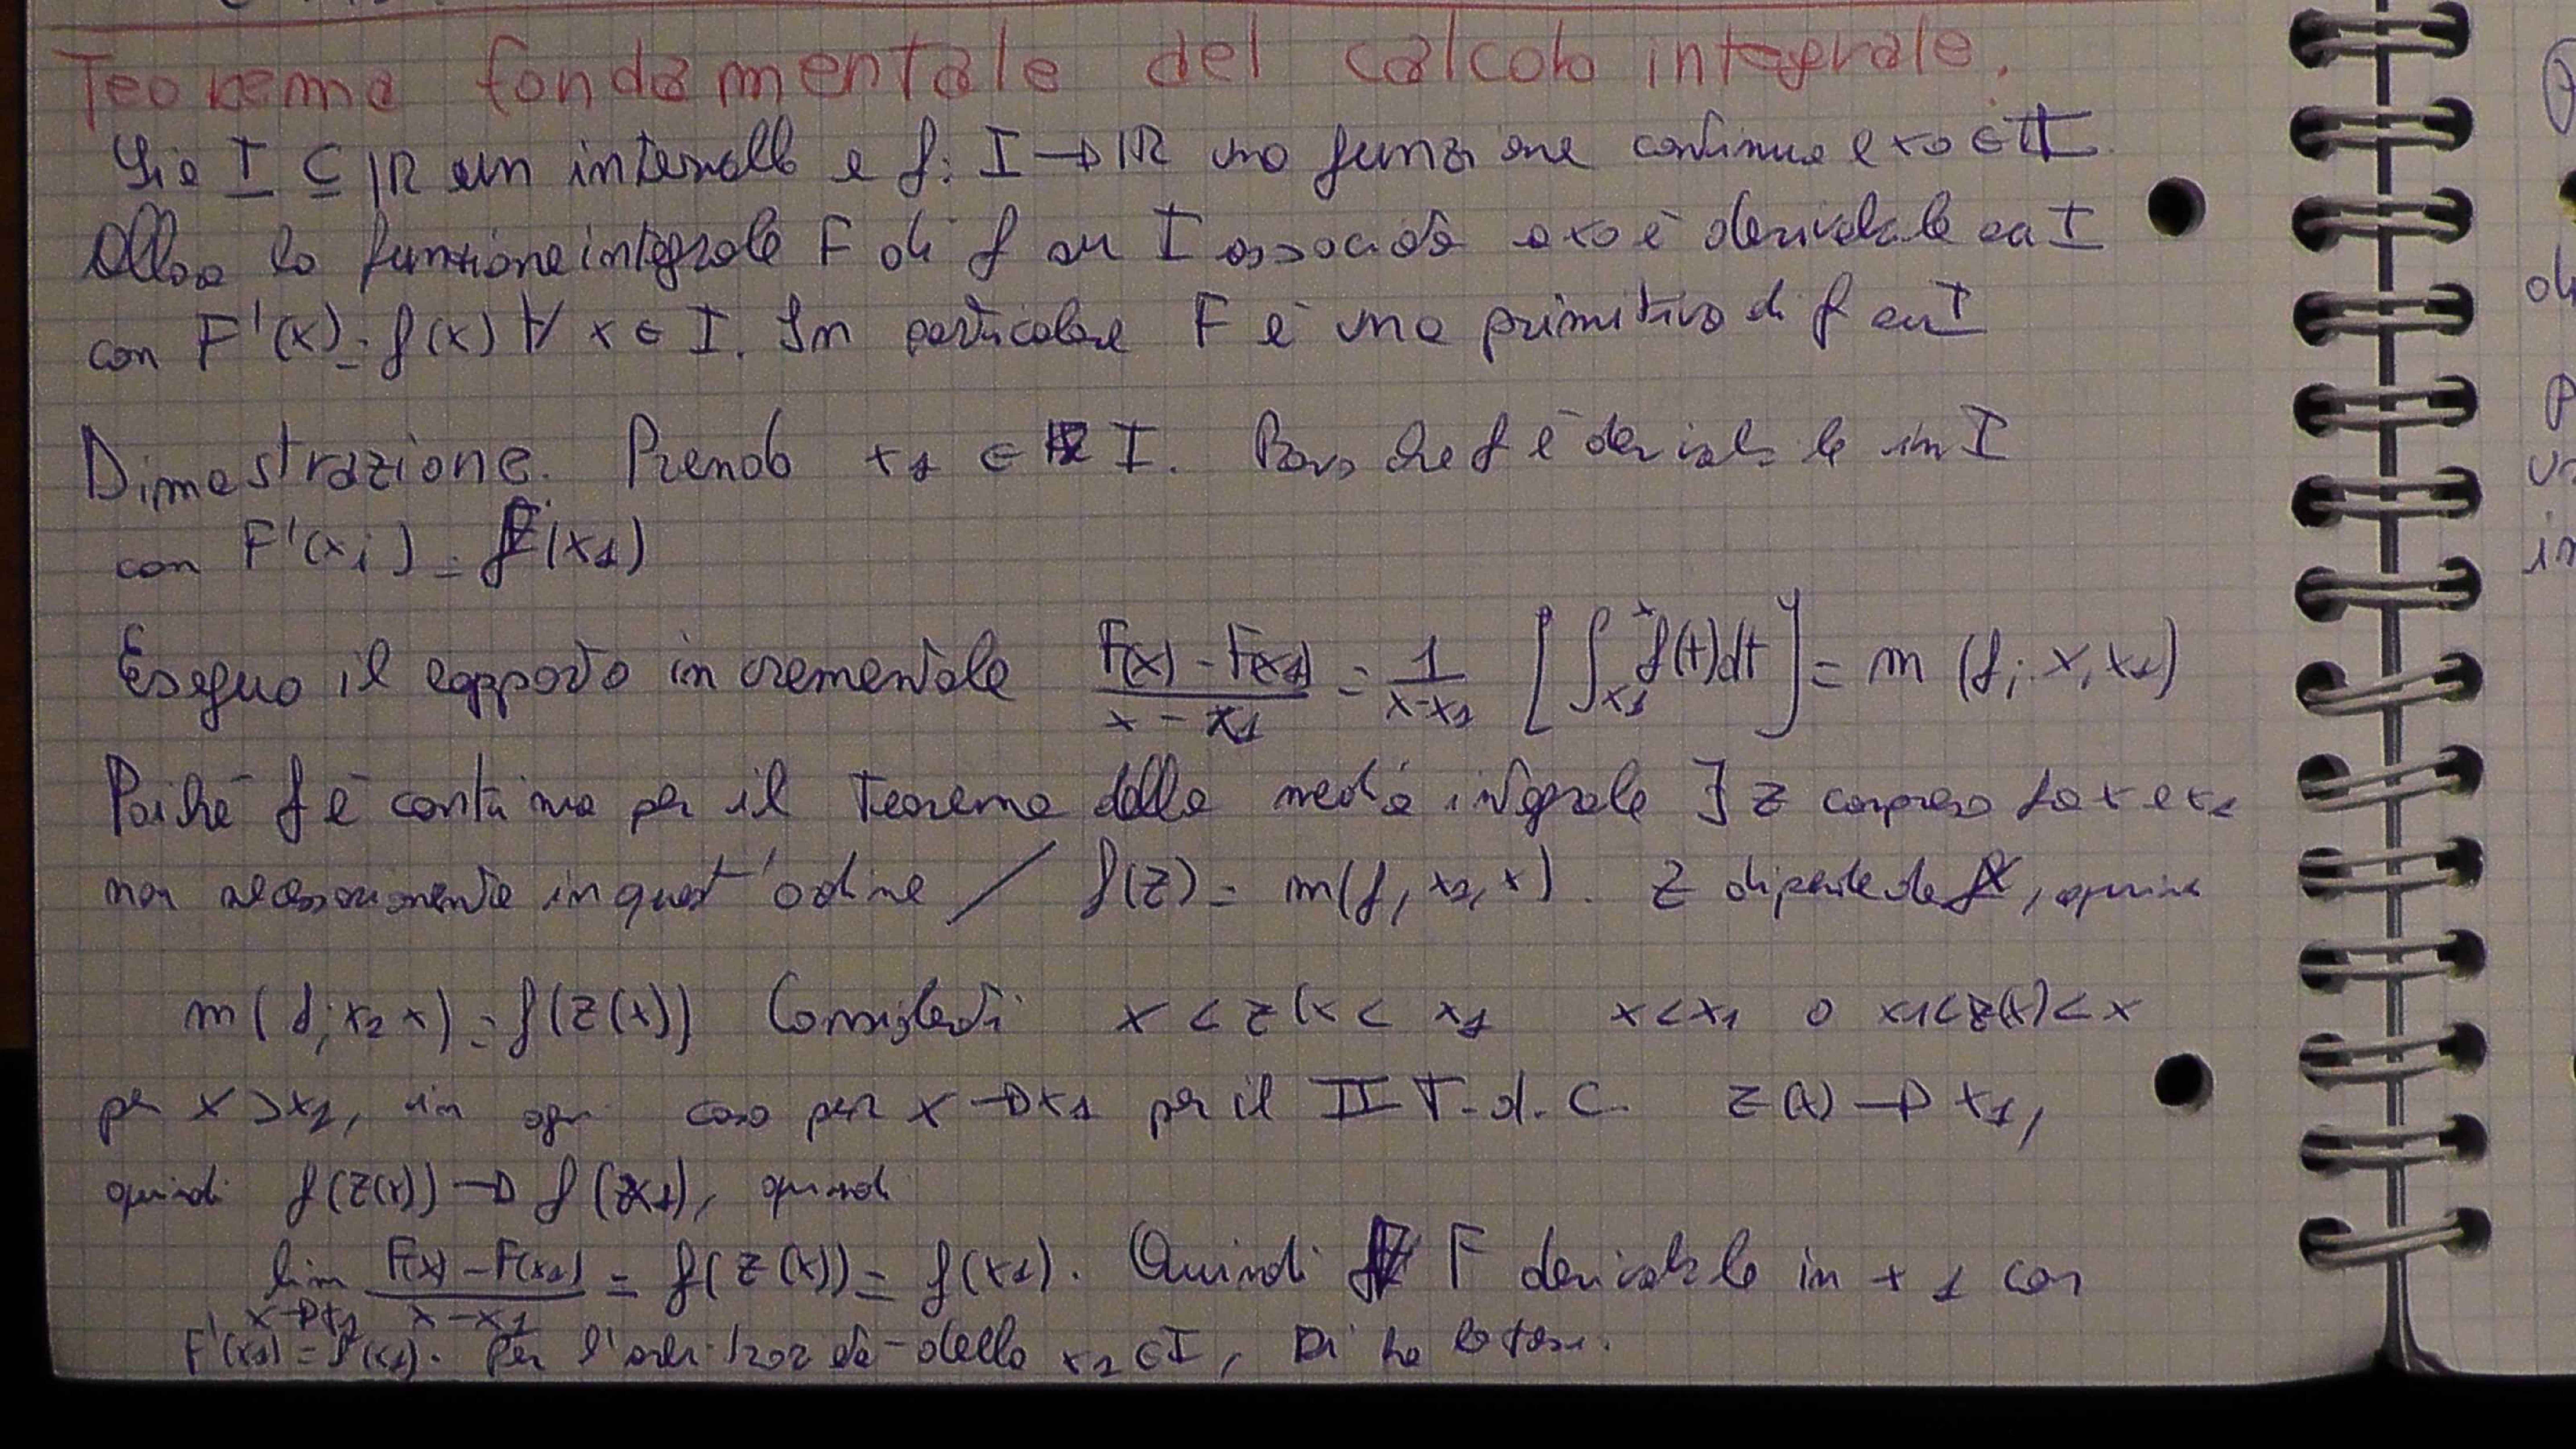 Teorema fondamentale del calcolo integrale.
Sia I ⊆ IR un intervallo e f: I → IR una funzione continua e x0 ∈ I.
Allora la funzione integrale F di f su I associata a x0 è derivabile su I
con F'(x) = f(x) ∀ x ∈ I. In particolare F è una primitiva di f su I
Dimostrazione. Prendo x1 ∈ I. Provo che f è derivabile in I
con F'(x1) = f(x1)
Eseguo il rapporto incrementale (F(x) - F(x1))/(x - x1) = 1/(x-x1) [∫_{x1}^{x} f(t)dt] = m (f; x, x1)
Poiché f è continua per il teorema della media integrale ∃ z compreso fra x e x1
non necessariamente in quest'ordine / f(z) = m(f, x1, x). Z dipende da x, quindi
m(f; x1 x) = f(z(x)) Consideti x < z(x < x1 x<x1 o x1<z(x)<x
per x>x1, in ogni caso per x → x1 per il II T.d.C. z(x) → x1,
quindi f(z(x)) → f(x1), quindi
lim x→x1 (F(x) - F(x1))/(x-x1) = f(z(x)) = f(x1). Quindi F derivabile in x1 con
F'(x1) = f(x1). Per l'arbitrarietà della x1 ∈ I, si ha la tesi.